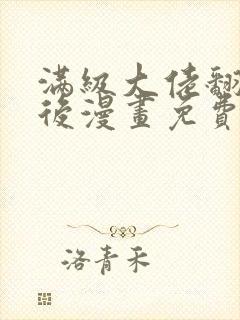 滿級大佬翻
後漫畫免費
洛青禾